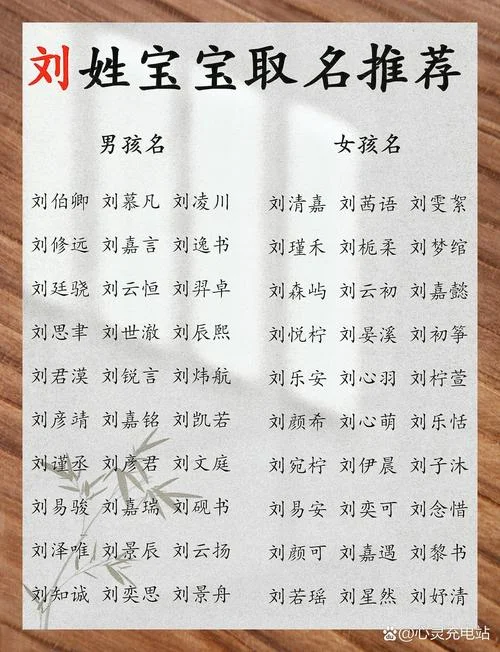 刘姓宝宝取名推荐
男孩名
刘伯卿 刘慕凡 刘凌川
刘修远 刘嘉言 刘逸书
刘廷骁 刘云恒 刘羿卓
刘思聿 刘世澈 刘辰熙
刘君漠 刘锐言 刘炜航
刘彦靖 刘嘉铭 刘凯若
刘谨丞 刘彦君 刘文庭
刘易骏 刘嘉瑞 刘砚书
刘泽唯 刘景辰 刘云扬
刘知诚 刘奕思 刘景舟
女孩名
刘清嘉 刘茜语 刘雯絮
刘瑾禾 刘栀柔 刘梦绾
刘森屿 刘云初 刘嘉懿
刘悦柠 刘晏溪 刘初筝
刘乐安 刘心羽 刘柠萱
刘颜希 刘心萌 刘乐恬
刘宛柠 刘伊晨 刘子沐
刘易安 刘奕可 刘念惜
刘颜可 刘嘉遇 刘黎书
刘若瑶 刘星然 刘妤清
@心灵充电站